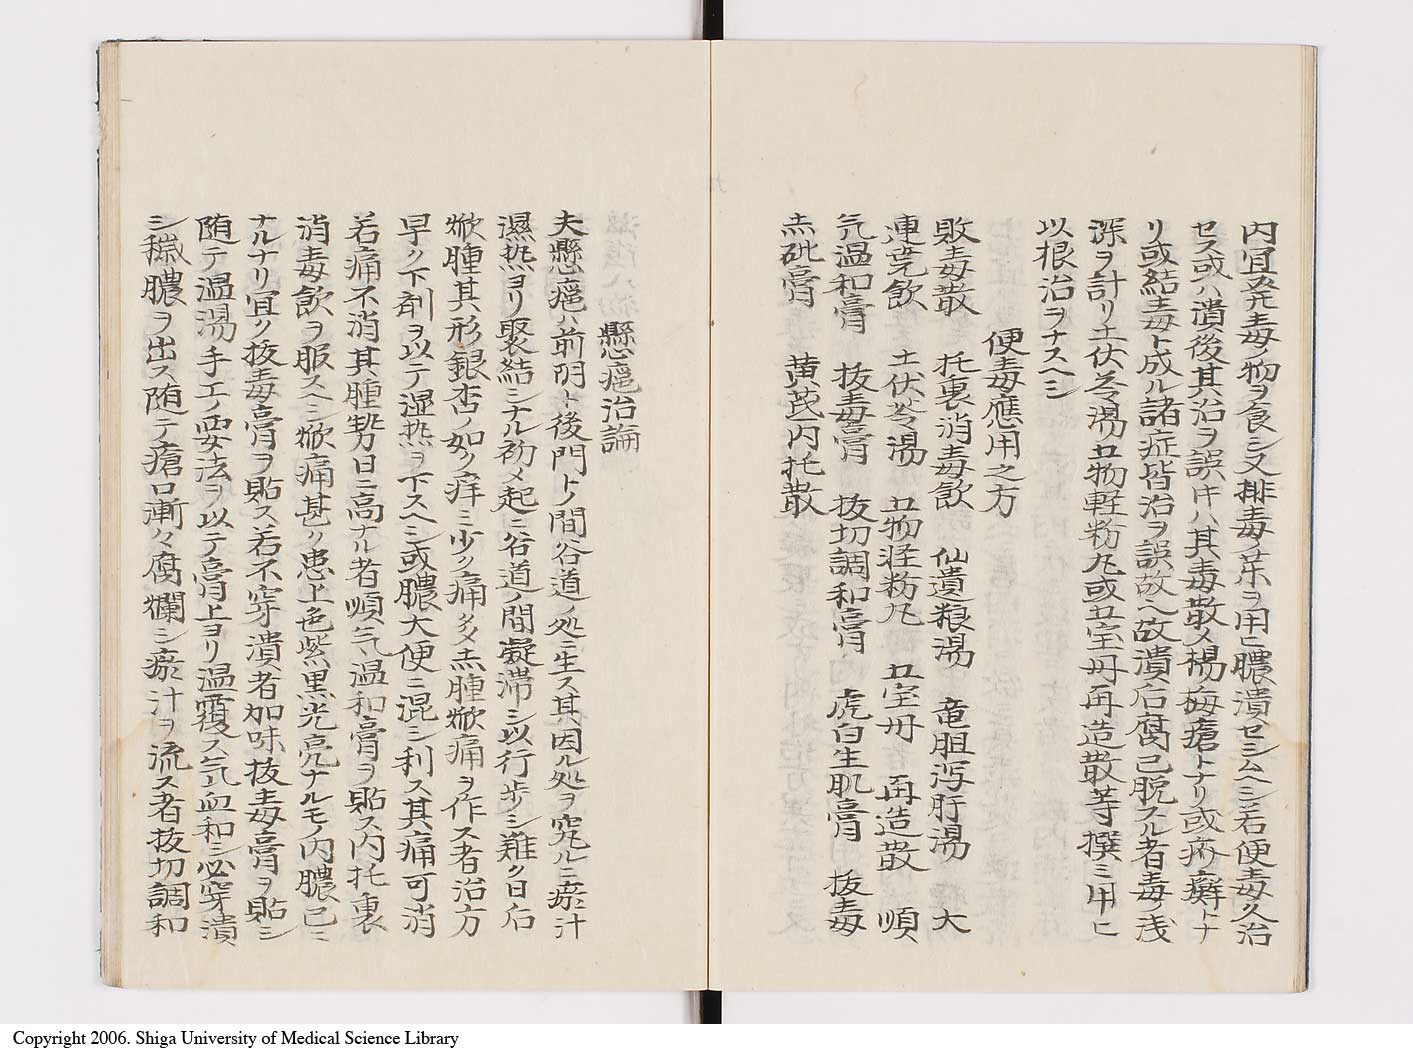 内宜発毒ノ物ヲ食シ又排毒ノ茶ヲ用ヒ膿潰セシムヘシ若便毒久治
セス或ハ潰後其治ヲ誤ルキハ其毒散ノ楊梅瘡トナリ或疥癬トナ
リ或結毒ト成ル諸症皆治ヲ誤故ヘ故潰后腐已脱スル者毒浅
深ヲ計リ土伏苓湯五物軽粉丸或五宝丹再造散等撰ミ用ヒ
以根治ヲナスヘシ
便毒應用之方
敗毒散 托裏消毒飲 仙遺粮湯 竜胆泻肝湯 大
連翹飲 土伏苓湯 五物軽粉丸 五宝丹 再造散 順
気温和膏 抜毒膏 抜切調和膏 虎白生肌膏 抜毒
赤砒膏 黄芪内托散
懸癰治論
夫懸癰ハ前阴ト後門トノ間谷道ノ処ニ生ス其因ル処ヲ究ルニ瘀汁
濕热ヨリ聚結シナル初メ起ニ谷道ノ間凝滞シ以行歩シ難ク日后
焮腫其形銀杏ノ如ク痒ミ少ク痛多メ赤腫焮痛ヲ作ス者治方
早ク下剤ヲ以テ湿热ヲ下スヘシ或膿大便ニ混シ利ス其痛可消
若痛不消其腫勢日ニ高ナル者順気温和膏ヲ貼ス内托裏
消毒飲ヲ服スヘシ焮痛甚ク患上色紫黒光亮ナルモノ内膿已ニ
ナルナリ宜ク抜毒膏ヲ貼ス若不穿潰者加味抜毒膏ヲ貼シ
随テ温湯手工ノ要法ヲ以テ膏上ヨリ温覆ス気血和シ必穿潰
シ穢膿ヲ出ス随テ瘡口漸々腐爛シ瘀汁ヲ流ス者抜切調和
Copyright 2006. Shiga University of Medical Science Library